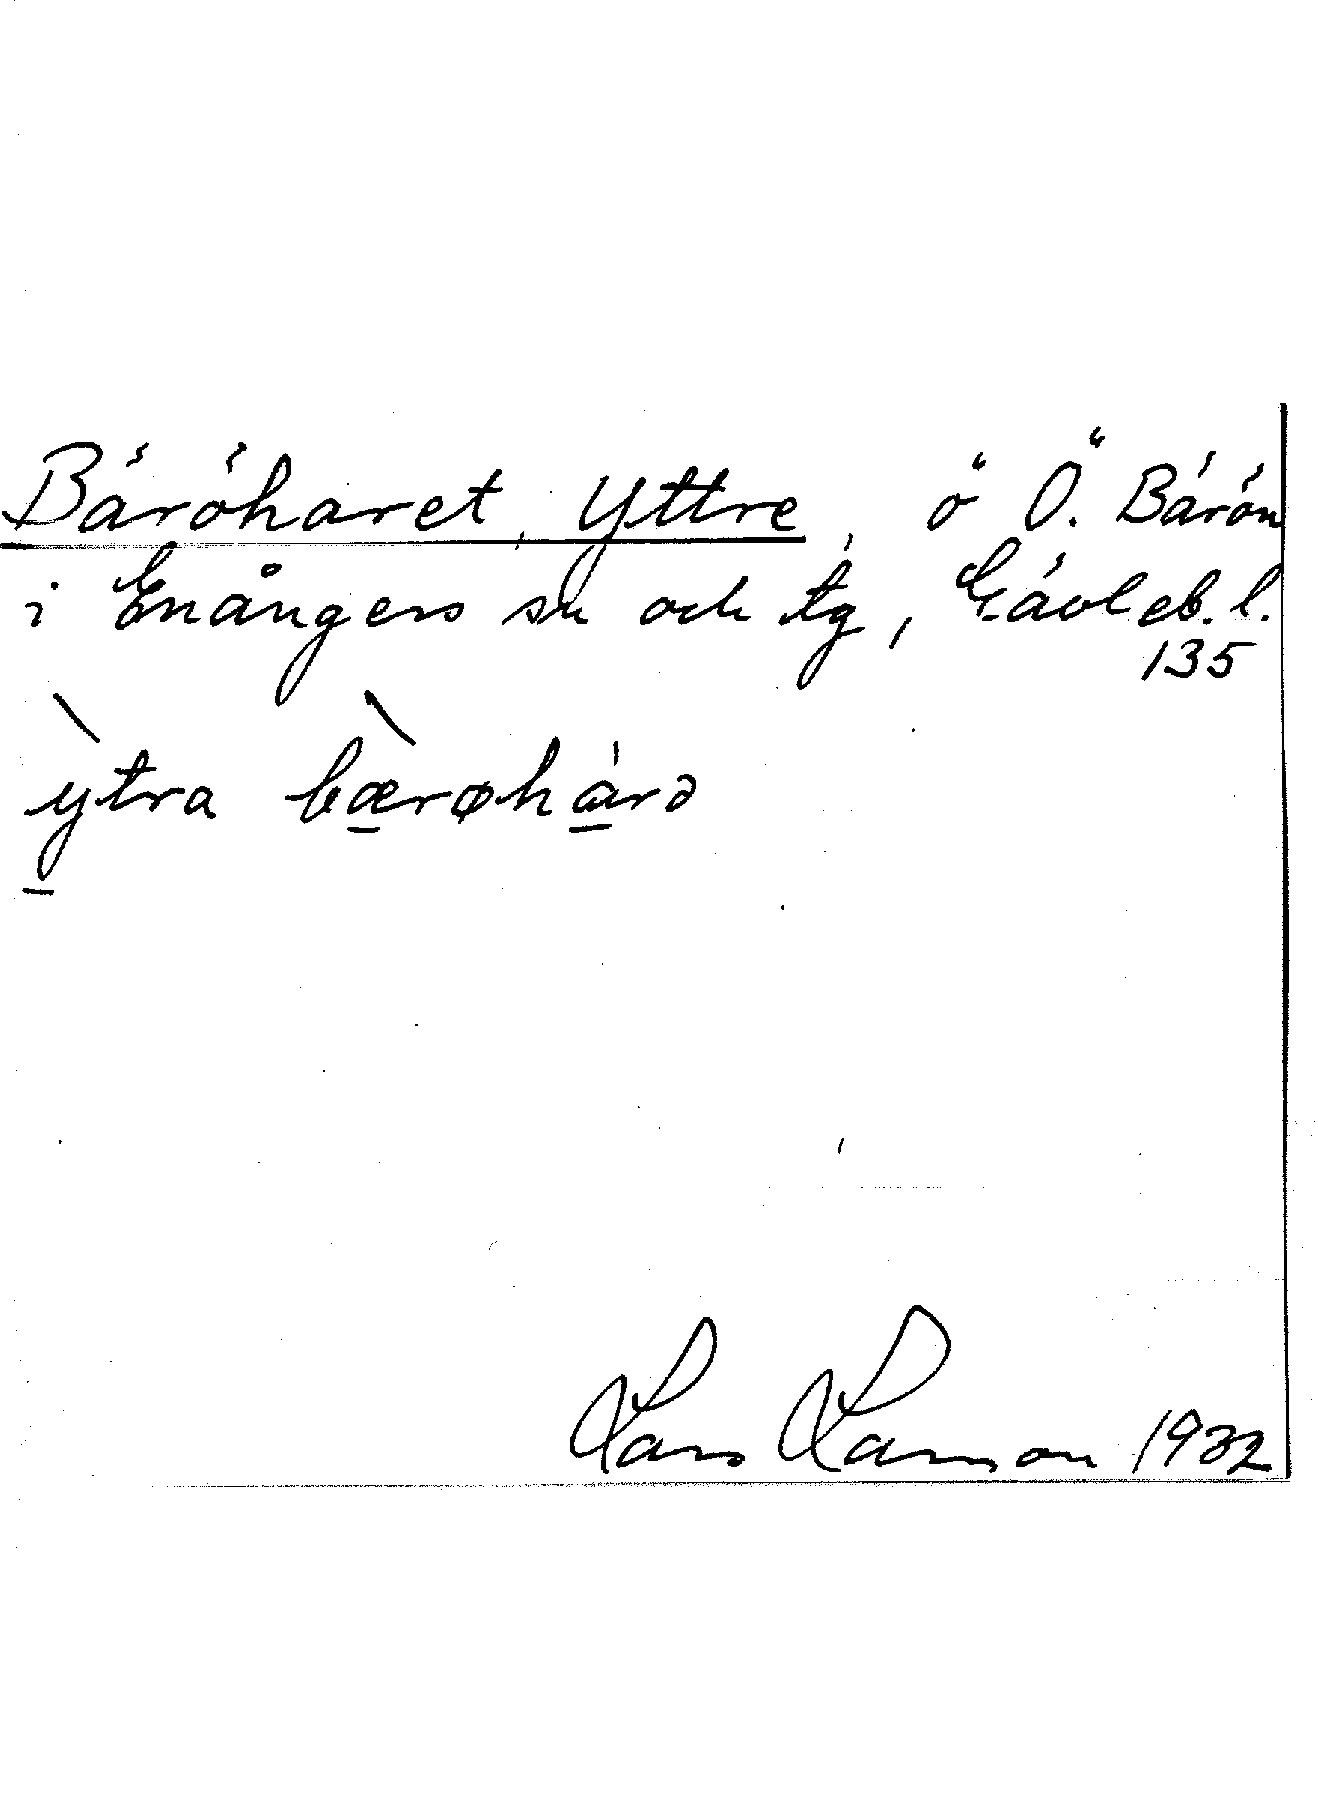 Bäröharet, Yttre, ö Ö. Bärön
i Enångers sn och tg, Gävleb. l.
135
ytra bærøharə
Lars Larsson 1932